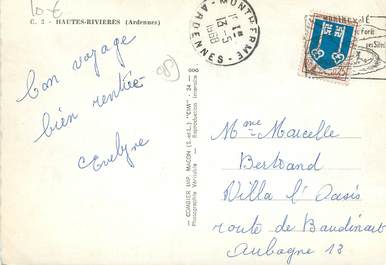 10€
C. 2 - HAUTES-RIVIÈRES (Ardennes)
MONTHERMÉ
ARDENNES
13-5
1968
bon voyage
bien rentrée
Evelyne
COMBIER IMP. MACON (S.-et-L.) "CIM" - 24 - 000
Photographie Véritable - Reproduction interdite
Mme Marcelle
Bertrand
Villa l'Oasis
route de Baudinart
Aubagne 13